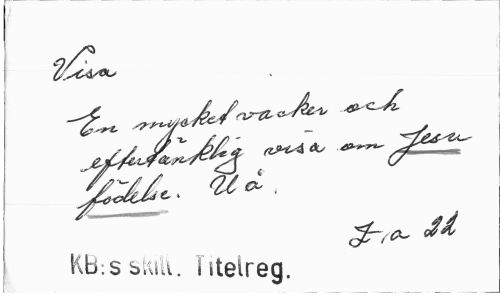 Visa
En mycket vacker och
eftertänklig visa om Jesu
födelse. U å.
I, a 22
KB:s skill. Titelreg.